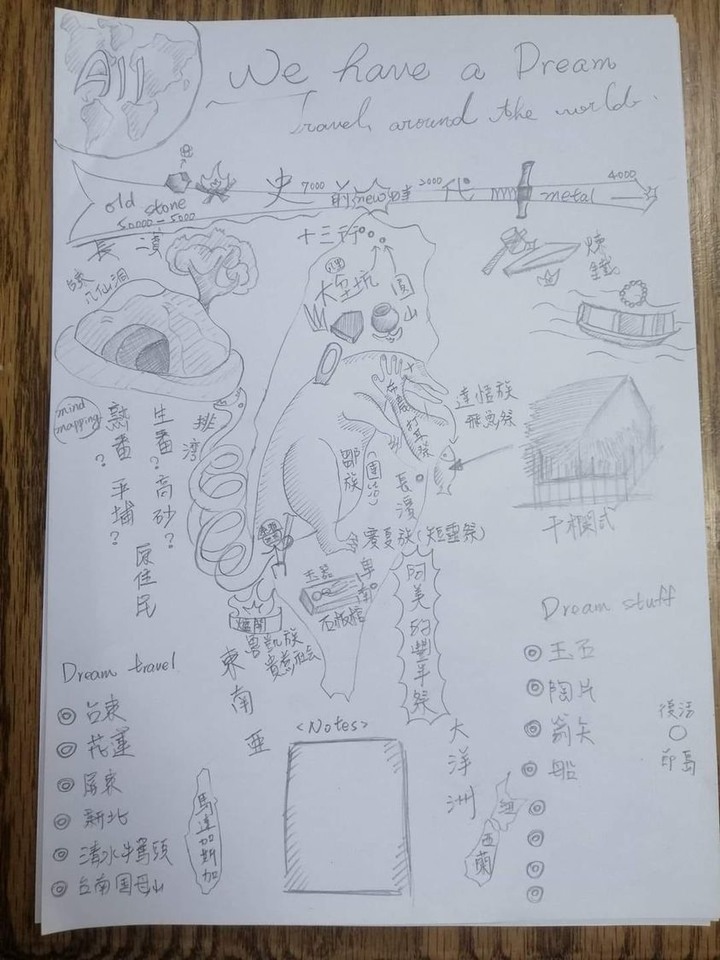 All
We have a Dream
Travel around the world.
old stone
50000-5000
史 7000 前 new 時 2000 代 metal 4000
長濱
八仙洞
十三行
八里
大坌坑
圓山
煉鐵
mind mapping
熟番? 平埔?
生番? 高砂?
原住民
排灣
布農 打耳祭
達悟族
飛魚祭
鄒族
長濱
干欄式
(矮靈祭)
卑南
玉器
石板棺
阿美的豐年祭
魯凱族
貴族社會
東南亞
大洋洲
Dream travel
台東
花蓮
屏東
新北
清水牛罵頭
台南國母山
馬達加斯加
<Notes>
Dream stuff
玉石
陶片
箭矢
船
復活
印島
西蘭